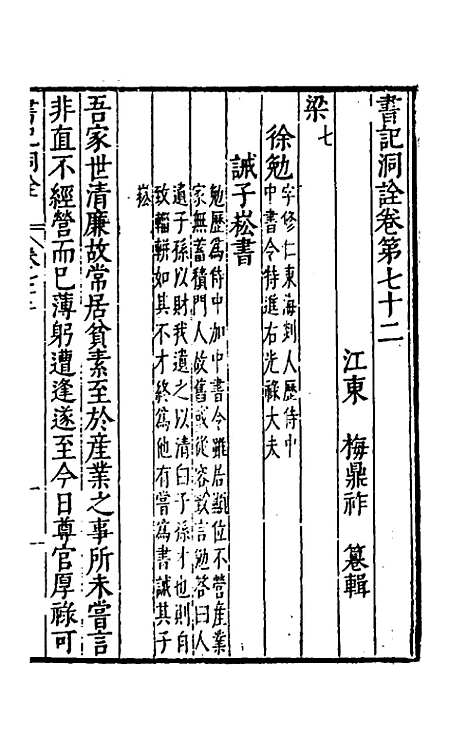 書記洞詮卷第七十二
江東 梅鼎祚 纂輯
梁七
徐勉字修仁東海剡人歷侍中
中書令特進右光祿大夫
誡子崧書
勉歷爲侍中加中書令雖居顯位不營産業
家無蓄積門人故舊或從容致言勉答曰人
遺子孫以財我遺之以清白子孫才也則自
致輜軿如其不才終爲他有嘗爲書誡其子
崧
吾家世清廉故常居貧素至於産業之事所未嘗言
非直不經營而已薄躬遭逢遂至今日尊官厚祿可
書記洞詮 卷七十二 一